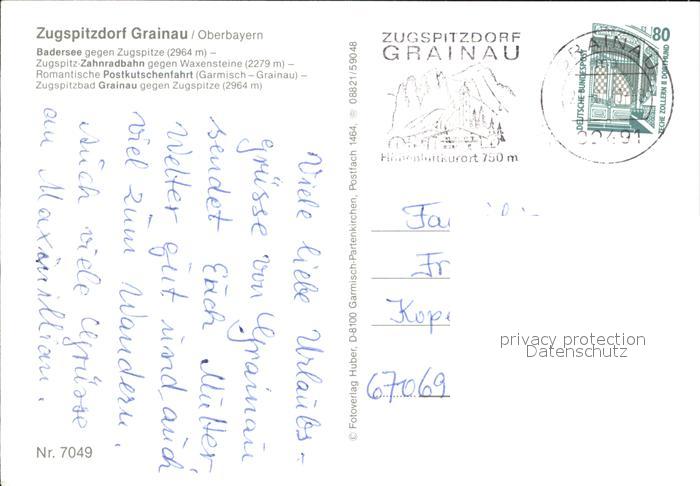 Zugspitzdorf Grainau / Oberbayern
Badersee gegen Zugspitze (2964 m) –
Zugspitz-Zahnradbahn gegen Waxensteine (2279 m) –
Romantische Postkutschenfahrt (Garmisch – Grainau) –
Zugspitzbad Grainau gegen Zugspitze (2964 m)
Viele liebe Urlaubs-
grüsse von Grainau
sendet Euch Mutter
Wetter gut und auch
viel zum Wandern.
Auch viele Grüsse
an Maximillian.
Nr. 7049
© Fotoverlag Huber, D-8100 Garmisch-Partenkirchen, Postfach 1464, ☏ 08821/59048
ZUGSPITZDORF
GRAINAU
Höhenluftkurort 750 m
GRAINAU
82491
80
DEUTSCHE BUNDESPOST
ZECHE ZOLLERN II DORTMUND
Fa
Fr
Kope
67069
privacy protection
Datenschutz